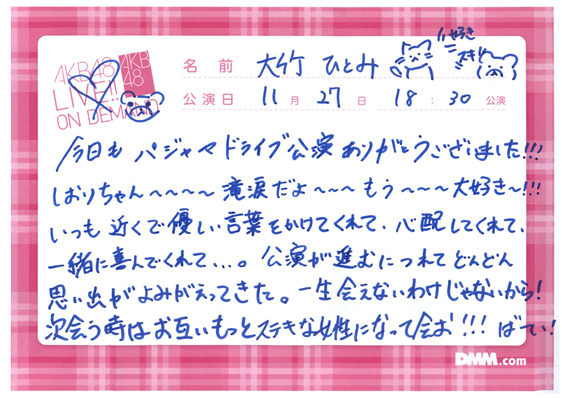 AKB48
LIVE!!
ON DEMAND
AKB
48
名 前 大竹 ひとみ
大好き
スキ
公演日 11月 27日 18:30 公演
今日も パジャマドライブ公演 ありがとうございました!!!
しおりちゃん〜〜〜〜 滝涙だよ〜〜〜 もう〜〜〜 大好き〜!!!
いつも 近くで優しい言葉をかけてくれて、心配してくれて、
一緒に喜んでくれて...。公演が進むにつれてどんどん
思い出がよみがえってきた。一生会えないわけじゃないから!
次会う時はお互いもっとステキな女性になって会お!!! ばてぃ!
DMM.com